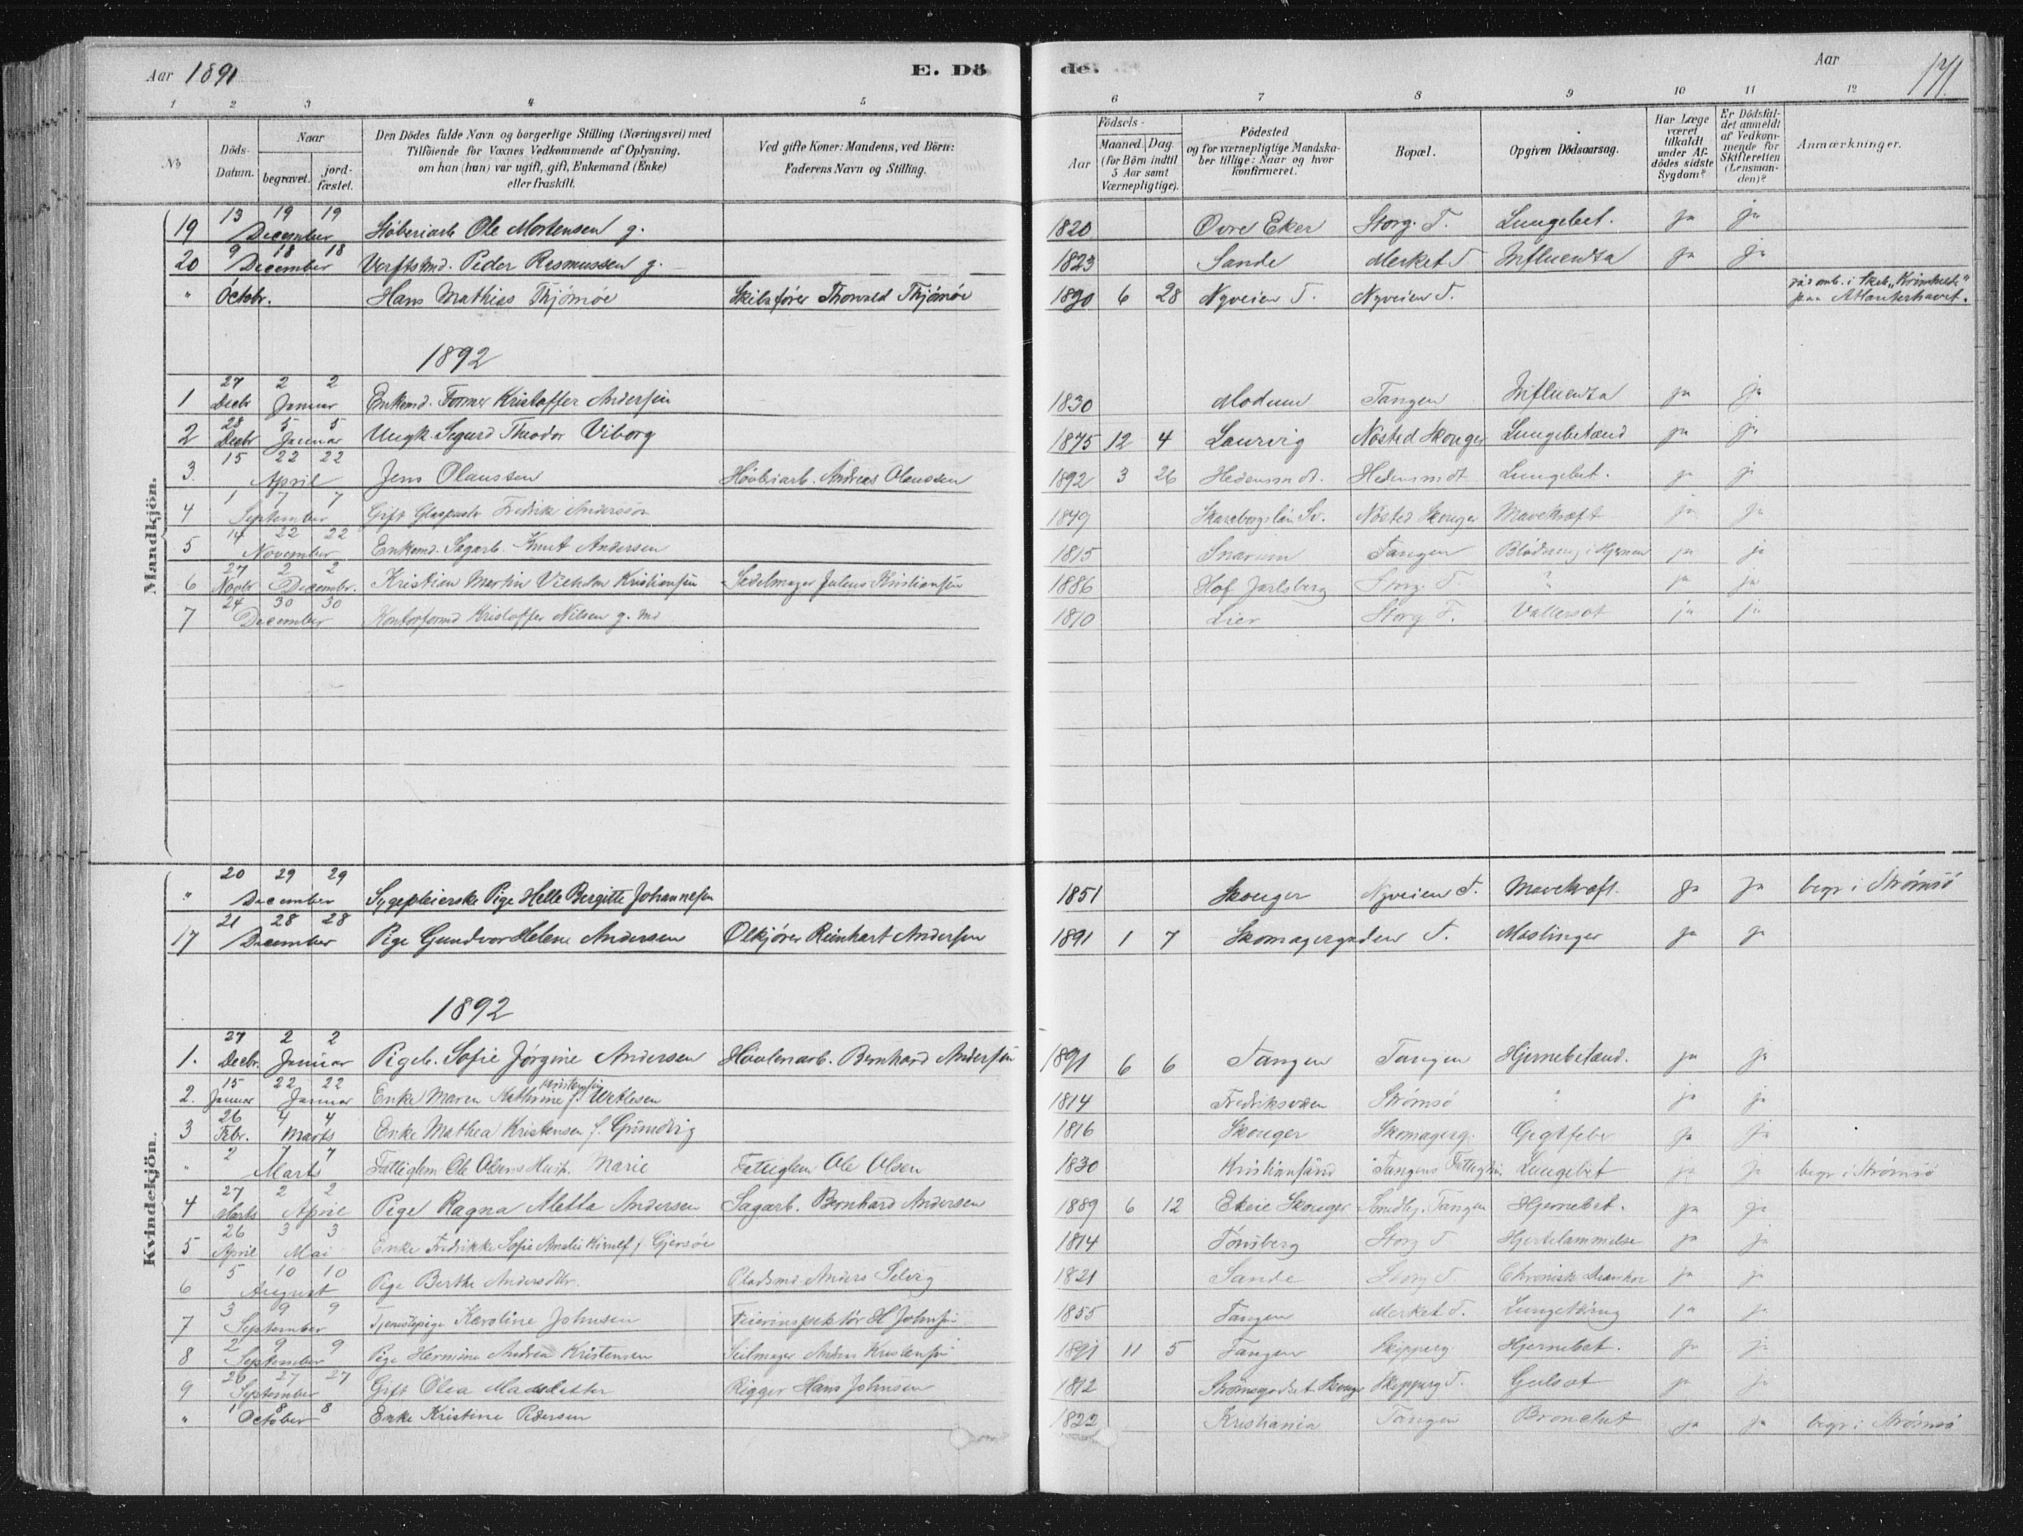 Aar 1891 E. Dö de. Aar 171.
1 2 3 4 5 6 7 8 9 10 11 12
No Döds-Datum. Naar begravet. jord-fæstet. Den Dödes fulde Navn og borgerlige Stilling (Næringsvei) med Tilföiende for Voxnes Vedkommende af Oplysning, om han (hun) var ugift, gift, Enkemand (Enke) eller fraskilt. Ved gifte Koner: Mandens, ved Börn: Faderens Navn og Stilling. Födsels- Aar Maaned. Dag. (for Börn indtil 5 Aar samt Værnepligtige). Födested og for værnepligtige Mandskaber tillige: Naar og hvor konfirmeret. Bopæl. Opgiven Dödsaarsag. Har Læge været tilkaldt under Afdödes sidste Sygdom? Er Dödsfaldet anmeldt af Vedkommende for Skifteretten (Lensmanden)? Anmærkninger.
Mandkjön.
19 13 December 19 19 Støberiarb Ole Mortensen g. 1820 Øvre Eker Storg. T. Lungebet. ja ja
20 9 December 18 18 Verftstmd. Peder Rasmussen g. 1823 Sande Merket T Influenza ja ja
" Octobr. Hans Mathias Thjømøe Skibsfører Thorvald Thjømøe 1890 6 28 Nyveien T. Nyveien T. paa Atlanterhavet.
1892
1 27 Decbr 2 2 Januar Enkemd. Former Kristoffer Andersen 1830 Modum Tangen Influenza ja ja
2 28 Decbr 5 5 Januar Ungk. Sigurd Theodor Viborg 1875 12 4 Laurvig Nøsted Skouger Lungebetænd ja ja
3. 15 22 22 April Jens Olaussen Høvleriarb. Andreas Olaussen 1892 3 26 Hedensmdt. Hedensmdt Lungebet. ja ja
4 1 7 7 September Gift Glaspuster Fredrik Andersson 1849 Skaraborgslän Sv. Nøsted Skouger Mavekræft ja ja
5 14 22 22 November Enkemd. Sagarb. Knut Andersen 1815 Snarum Tangen Blødning i Hjernen ja ja
6 27 Novbr 2 2 Decembr. Kristian Martin Vilhelm Kristiansen Sadelmager Julius Kristiansen 1886 Hof Jarlsberg Storg. T ? ja ja
7 24 30 30 December Kontorformd Kristoffer Nilsen g. md 1810 Lier Storg T. Vattersot ja ja
Kvindekjön.
" 20 29 29 December Sygepleierske Pige Helle Bergitte Johannesen 1851 Skouger Nyveien T. Mavekræft. ja ja begr i Strømsö
17 21 28 28 December Pige Gundvor Helene Andersen Ølkjører Reinhart Andersen 1891 1 7 Skomagergaden T. Meslinger ja ja
1892
1. 27 Decbr. 2 2 Januar Pigeb. Sofie Jørgine Andersen Høvleriarb. Bernhard Andersen 1891 6 6 Tangen Tangen Hjernebetænd. ja ja
2. 15 Januar 22 22 Januar Enke Maren Kathrine f. Vetlesen 1814 Fredriksværn Strømsö " ja ja
3 26 Febr. 4 4 Marts Enke Mathea Kristensen f. Grundvig 1816 Skouger Skomagerg. Gigtfeber ja ja
" 2 7 7 Marts Fattiglem Ole Olsens Hust. Marie Fattiglem Ole Olsen 1830 Kristiansund Tangens Fattighus Lungebet ja ja begr i Strømsö
4 27 Marts 2 2 April Pige Ragna Aletta Andersen Sagarb. Bernhard Andersen 1889 6 12 Ekeie Skouger Tangen Hjernebet. ja ja
5 26 April 3 3 Mai Enke Fredrikke Sofie Amalie f. Gjersøe 1814 Tønsberg Storg T Hjertelammelse ja ja
6 5 10 10 August Pige Berthe Andersdtr. Pladsmd Anders Selvig 1821 Sande Storg T. Chronisk Diarrhoe ja ja
7 3 9 9 September Tjenestepige Karoline Johnsen Feierinspektør H Johnsen 1855 Tangen Merket T. Lungetæring ja ja
8 2 9 9 September Pige Hermine Andrea Kristensen Seilmager Anders Kristensen 1891 11 5 Tangen Skipperg. Hjernebet. ja ja
9 26 27 27 September Gift Olea Madsdatter Rigger Hans Johnsen 1812 Strømsgodset Skouger Skipperg T. Gulsot ja ja
" 1 8 8 October Enke Kristine Pedersen 1822 Kristiania Tangen Bronchit ja ja begr. i Strømsö